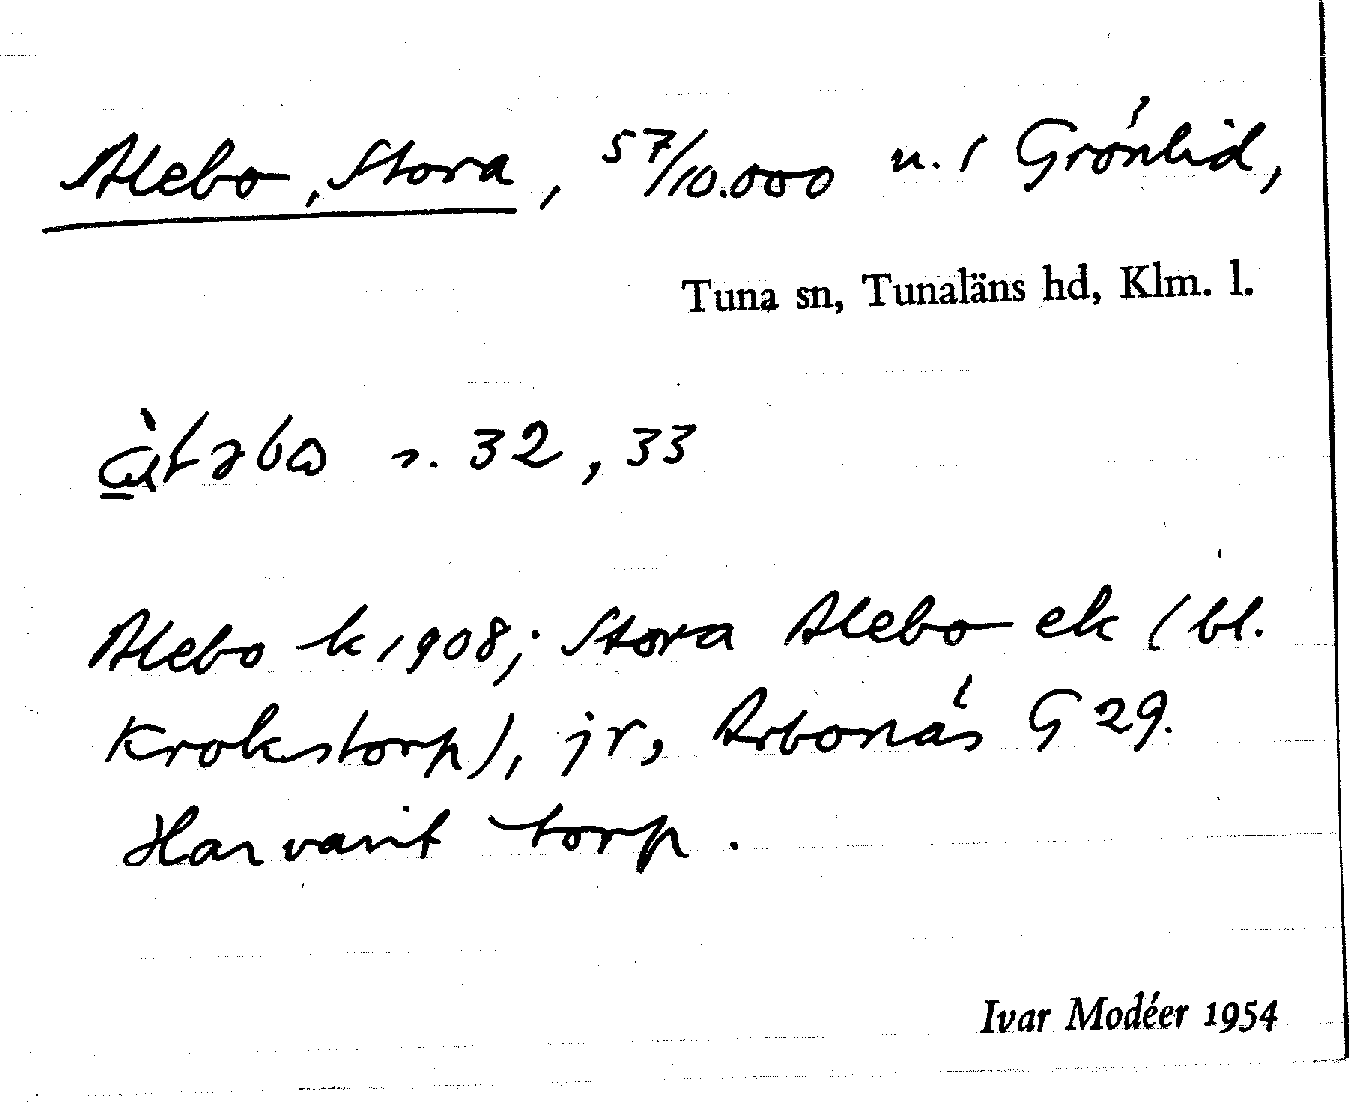 Alebo, Stora, 57/10.000 u. i Grönlid,
Tuna sn, Tunaläns hd, Klm. l.
s. 32, 33
Alebo k 1908; Stora Alebo ek (bl.
Krokstorp), jr, Arbonäs G 29.
Har varit torp.
Ivar Modéer 1954